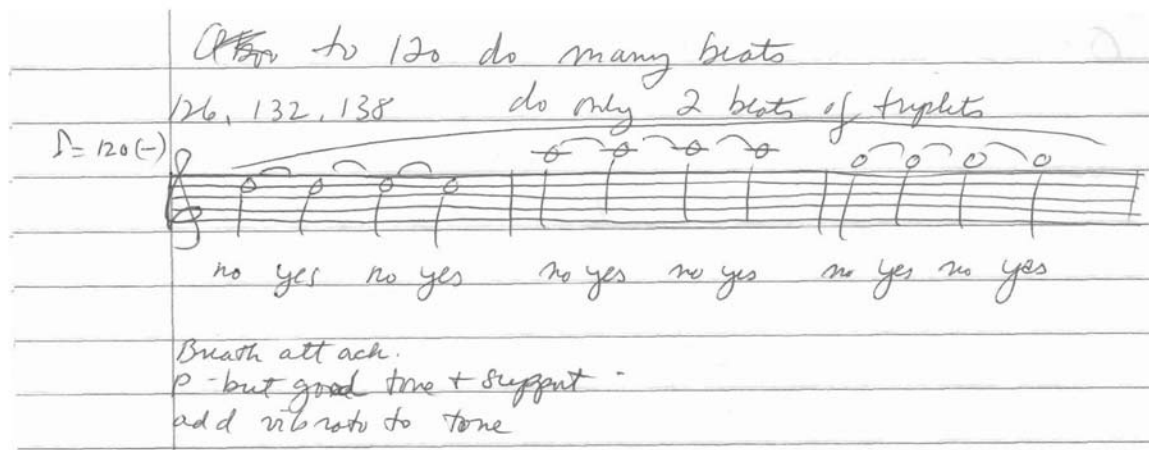 to 120 do many beats
126, 132, 138 do only 2 beats of triplets
♪ = 120 (-)
no yes no yes no yes no yes no yes no yes
Breath attack.
p - but good tone + support -
add vibrato to tone